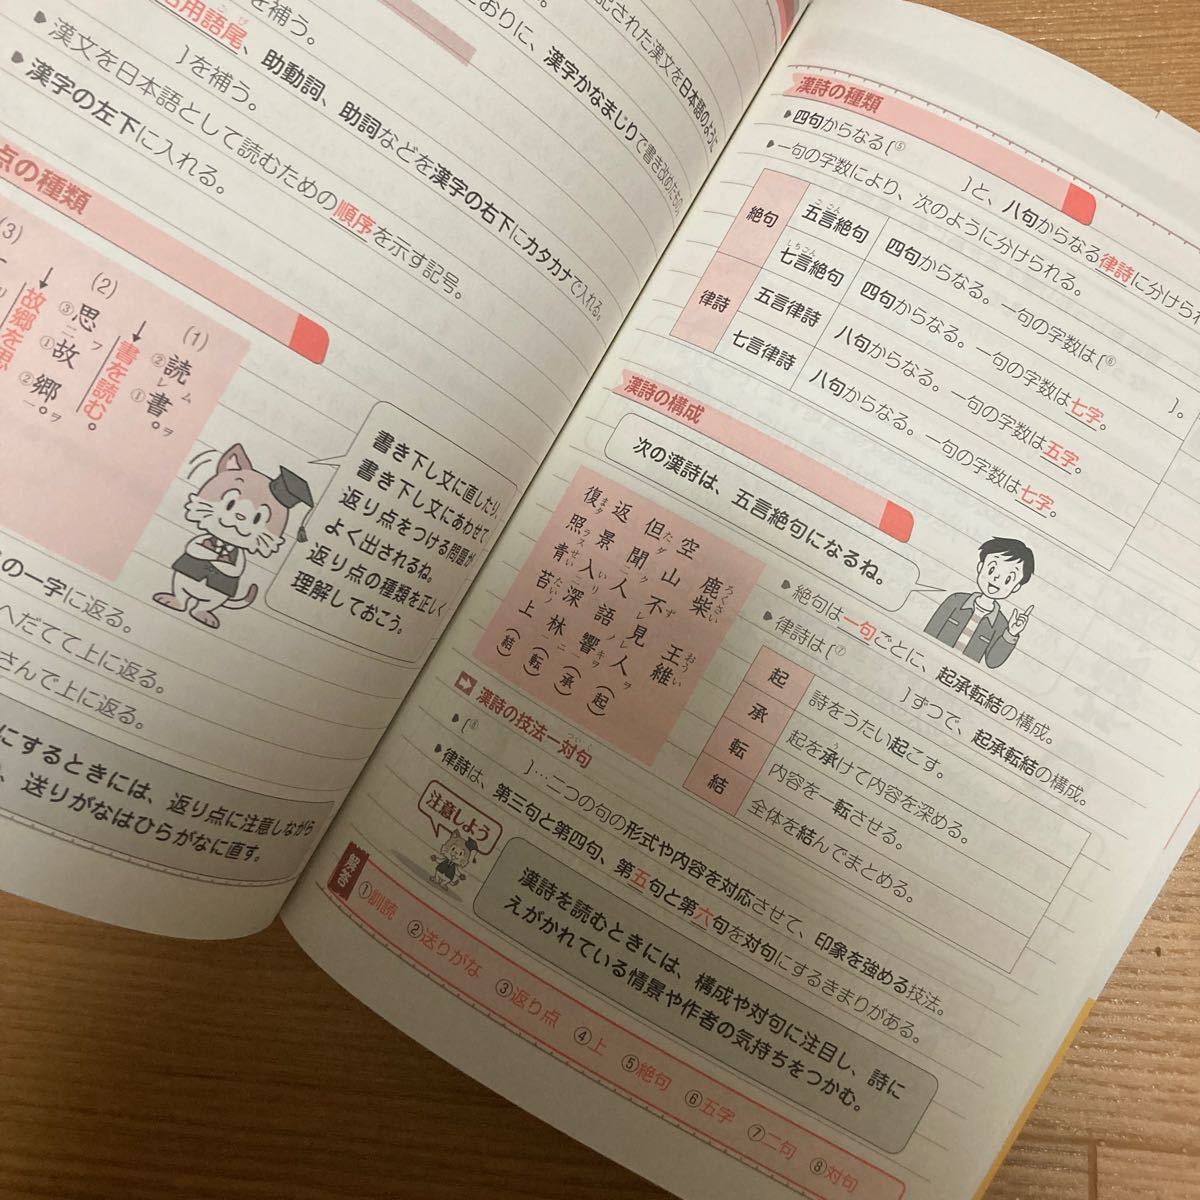 漢詩の種類
四句からなる〔⑤　　　〕と、八句からなる律詩に分けられ
一句の字数により、次のように分けられる。
絶句
五言絶句
ごごん
四句からなる。一句の字数は〔⑥　　　〕。
七言絶句
しちごん
四句からなる。一句の字数は七字。
律詩
五言律詩
八句からなる。一句の字数は五字。
七言律詩
八句からなる。一句の字数は七字。
漢詩の構成
次の漢詩は、五言絶句になるね。
鹿柴 王維
ろくさい おうい
空山不見人（起）
但聞人語響（承）
返景入深林（転）
復照青苔上（結）
絶句は一句ごとに、起承転結の構成。
律詩は〔⑦　　　〕ずつで、起承転結の構成。
起
詩をうたい起こす。
承
起を承けて内容を深める。
転
内容を一転させる。
結
全体を結んでまとめる。
漢詩の技法―対句
ついく
〔⑧　　　〕…二つの句の形式や内容を対応させて、印象を強める技法。
律詩は、第三句と第四句、第五句と第六句を対句にするきまりがある。
注意しよう
漢詩を読むときには、構成や対句に注目し、詩に
えがかれている情景や作者の気持ちをつかむ。
解答
①訓読 ②送りがな ③返り点 ④上 ⑤絶句 ⑥五字 ⑦二句 ⑧対句
記された漢文を日本語のように
おりに、漢字かなまじりで書き改めたもの
を補う。
用語尾、助動詞、助詞などを漢字の右下にカタカナで入れる。
〕を補う。
漢文を日本語として読むための順序を示す記号。
漢字の左下に入れる。
点の種類
(1)
読ム レ 書ヲ。
② ①
書を読む。
(2)
思フ 二 故 郷ヲ 一。
③ ① ②
故郷を思
(3)
書き下し文に直したり、
書き下し文にあわせて
返り点をつける問題が
よく出されるね。
返り点の種類を正しく
理解しておこう。
の一字に返る。
へだてて上に返る。
さんで上に返る。
にするときには、返り点に注意しながら
、送りがなはひらがなに直す。